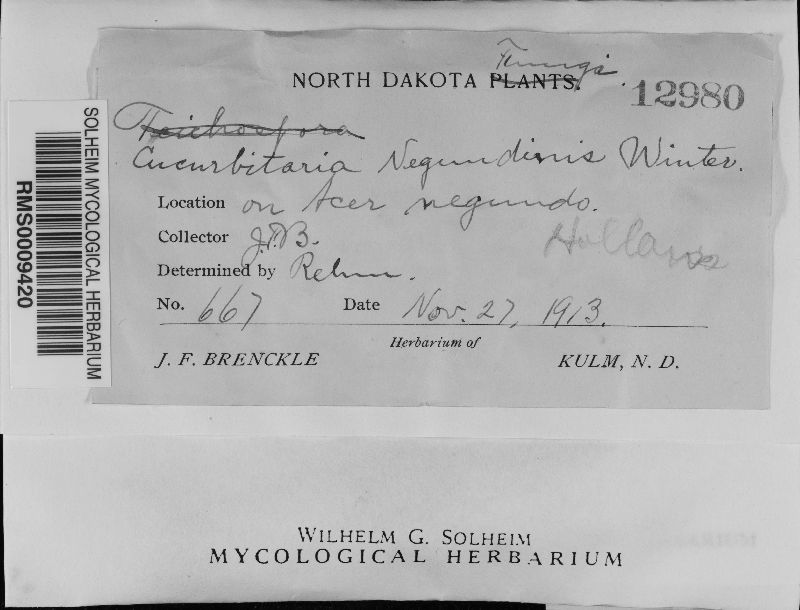 SOLHEIM MYCOLOGICAL HERBARIUM
RMS0009420
NORTH DAKOTA PLANTS. Fungi.
12980
Trichospora
Cucurbitaria Negundinis Winter.
Location on Acer negundo.
Collector J.F.B.
Determined by Rehm.
No. 667 Date Nov. 27, 1913.
Herbarium of
J. F. BRENCKLE KULM, N. D.
WILHELM G. SOLHEIM
MYCOLOGICAL HERBARIUM